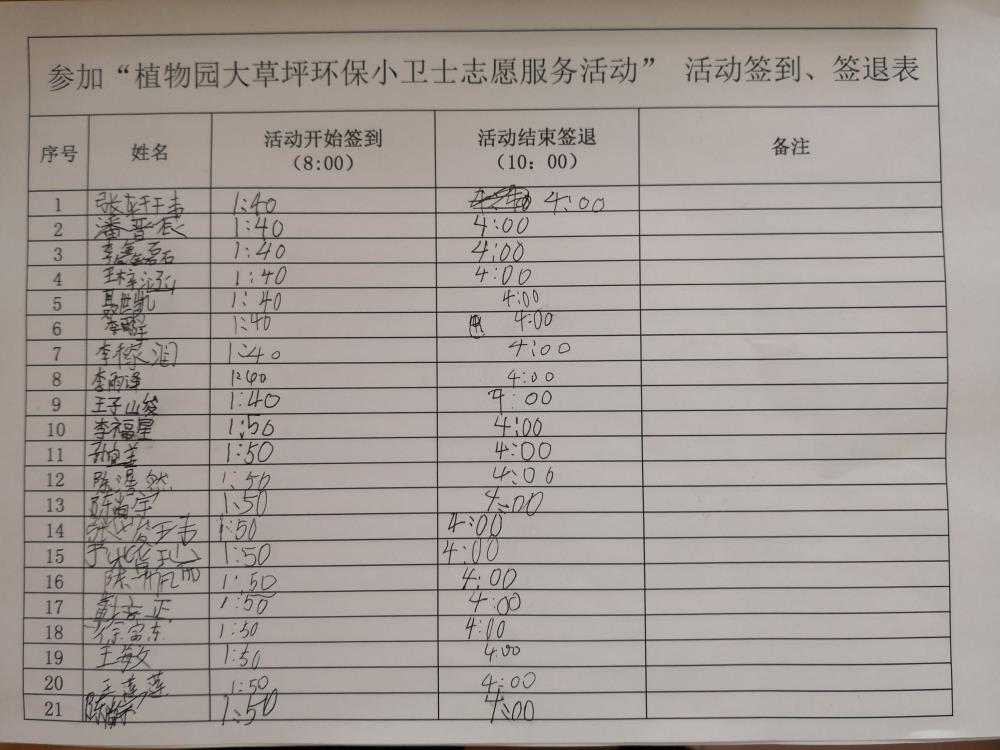 参加“植物园大草坪环保小卫士志愿服务活动” 活动签到、签退表
序号 姓名 活动开始签到 (8:00) 活动结束签退 (10:00) 备注
1 张轩玮 1:40 4:00
2 潘晋辰 1:40 4:00
3 李鑫磊 1:40 4:00
4 王梓涵 1:40 4:00
5 世凯 1:40 4:00
6 李 1:40 4:00
7 李稼润 1:40 4:00
8 李雨泽 1:40 4:00
9 王子峻 1:40 4:00
10 李福星 1:50 4:00
11 1:50 4:00
12 陈浩然 1:50 4:00
13 陈尚宇 1:50 4:00
14 张 玮 1:50 4:00
15 1:50 4:00
16 陈 1:50 4:00
17 戴立正 1:50 4:00
18 徐富东 1:50 4:00
19 王敏 1:50 4:00
20 王莲莲 1:50 4:00
21 陈 1:50 4:00